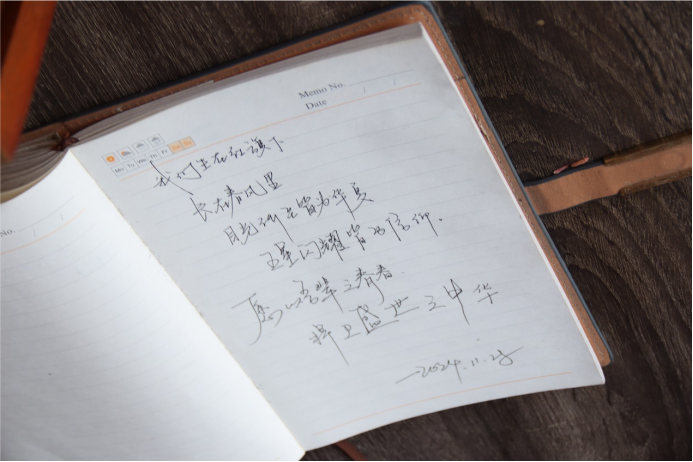 Memo No.
Date
Mo Tu We Th Fr Sa Su
我们生在红旗下
长在春风里
目光所至皆为华夏
五星闪耀皆为信仰.
愿以吾辈之青春.
捍卫盛世之中华
—2024.11.25
No.